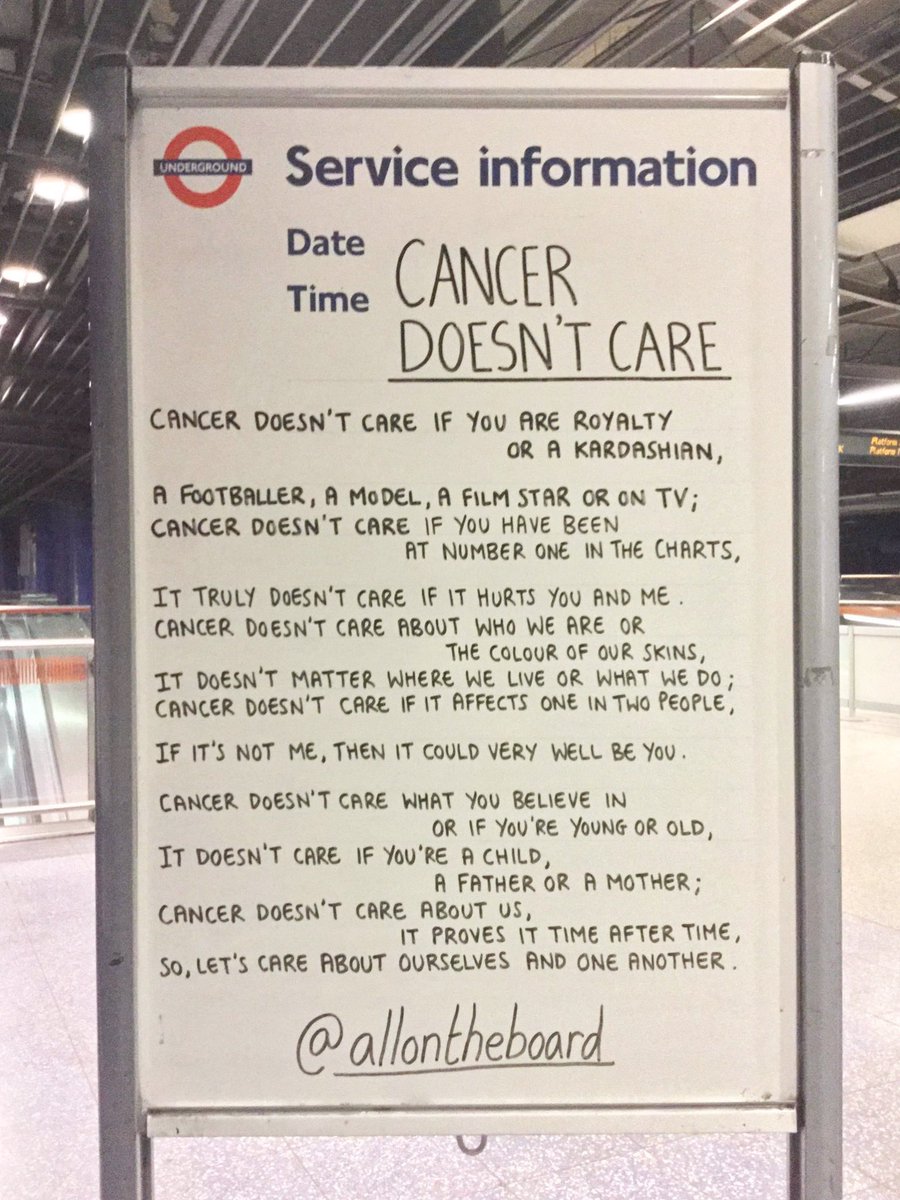 UNDERGROUND
Service information
Date
Time
CANCER
DOESN'T CARE
CANCER DOESN'T CARE IF YOU ARE ROYALTY
OR A KARDASHIAN,
A FOOTBALLER, A MODEL, A FILM STAR OR ON TV;
CANCER DOESN'T CARE IF YOU HAVE BEEN
AT NUMBER ONE IN THE CHARTS,
IT TRULY DOESN'T CARE IF IT HURTS YOU AND ME.
CANCER DOESN'T CARE ABOUT WHO WE ARE OR
THE COLOUR OF OUR SKINS,
IT DOESN'T MATTER WHERE WE LIVE OR WHAT WE DO;
CANCER DOESN'T CARE IF IT AFFECTS ONE IN TWO PEOPLE,
IF IT'S NOT ME, THEN IT COULD VERY WELL BE YOU.
CANCER DOESN'T CARE WHAT YOU BELIEVE IN
OR IF YOU'RE YOUNG OR OLD,
IT DOESN'T CARE IF YOU'RE A CHILD,
A FATHER OR A MOTHER;
CANCER DOESN'T CARE ABOUT US,
IT PROVES IT TIME AFTER TIME,
SO, LET'S CARE ABOUT OURSELVES AND ONE ANOTHER.
@allontheboard
Platform
Platform